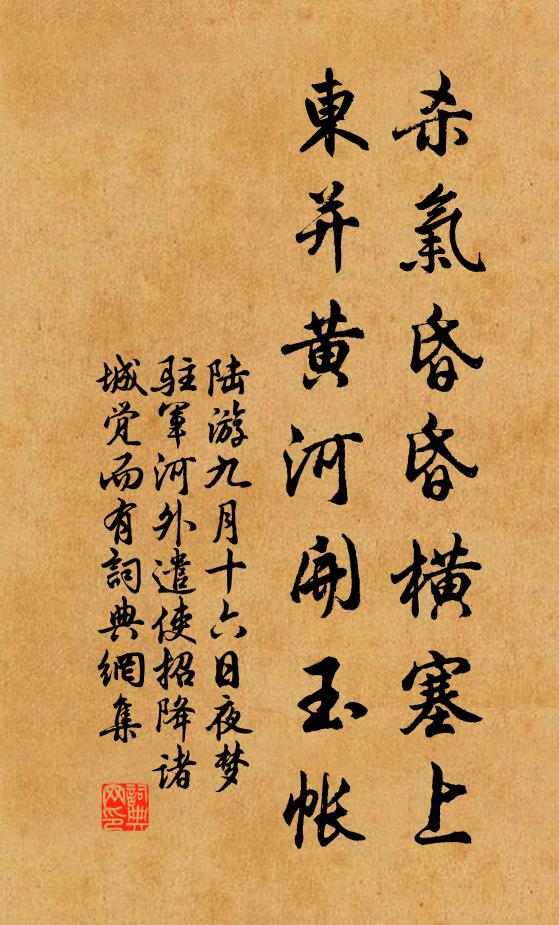 杀氣昏昏橫塞上
東并黃河開玉帳
陆游九月十六日夜梦
駐軍河外遣使招降诸
城觉而有詞典網集
詞典网印